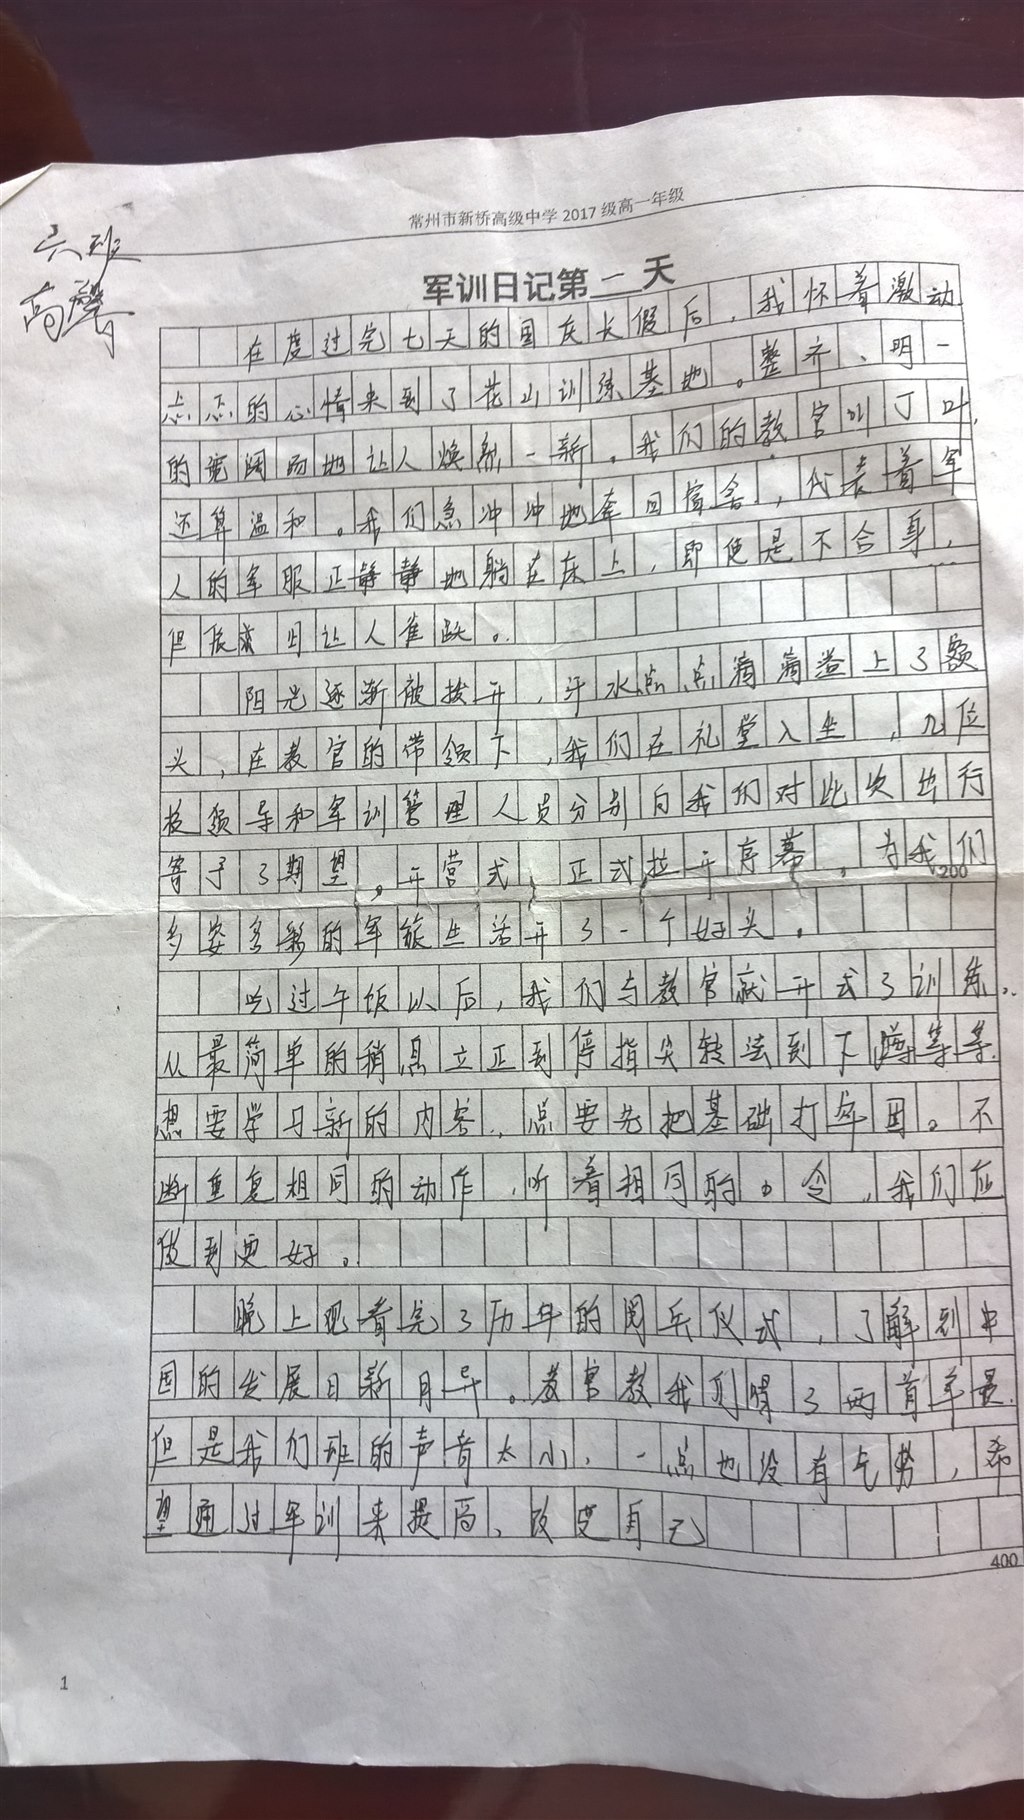 常州市新桥高级中学 2017 级高一年级
六班
高
军训日记第一天
在度过完七天的国庆长假后，我怀着激动
忐忑的心情来到了花山训练基地。整齐、明一
的宽阔场地让人焕然一新。我们的教官叫丁叶，
还算温和。我们急冲冲地奔回宿舍，代表着军
人的军服正静静地躺在床上，即使是不合身，
但依旧让人雀跃。
阳光逐渐被拨开，汗水点点滴滴溢上了额
头，在教官的带领下，我们在礼堂入坐，几位
校领导和军训管理人员分别向我们对此次出行
寄予了期望。开营式，正式拉开序幕。为我们
200
多姿多彩的军旅生活开了一个好头。
吃过午饭以后，我们与教官就开式了训练。
从最简单的稍息立正到停指尖转法到下蹲等等.
想要学习新的内容，总要先把基础打牢固。不
断重复相同的动作，听着相同的口令，我们应
做到更好。
晚上观看完了历年的阅兵仪式，了解到中
国的发展日新月异。教官教我们唱了两首军歌.
但是我们班的声音太小，一点也没有气势，希
望通过军训来提高、改变自己
400
1